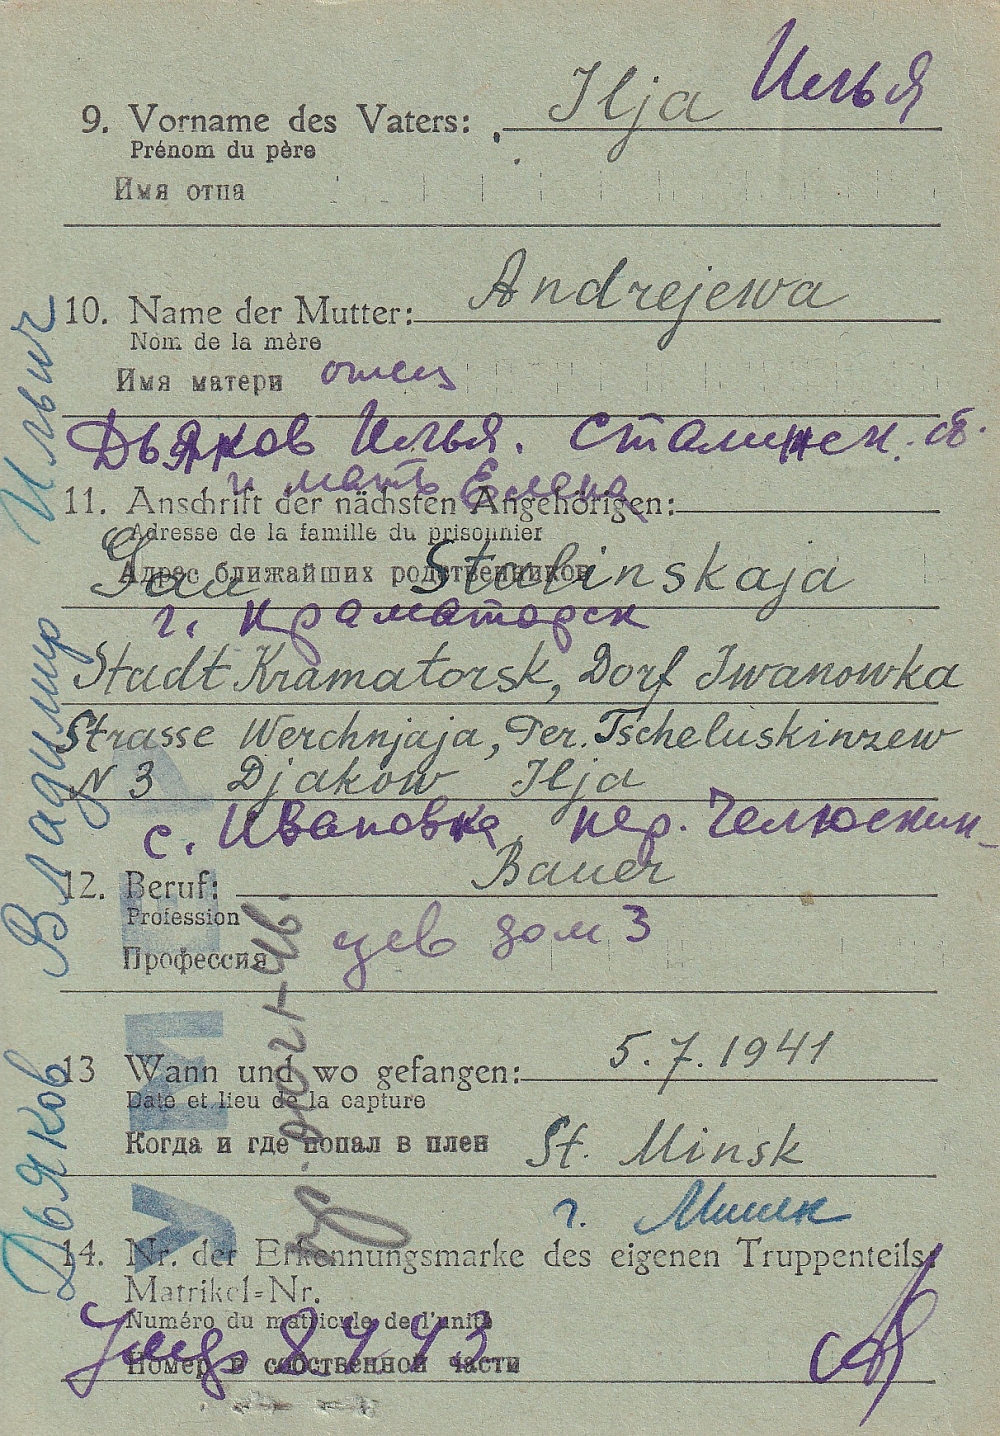 Ilja Илья
9. Vorname des Vaters:
Prénom du père
Имя отца
Andrejewa
10. Name der Mutter:
Nom de la mère
Имя матери отец
Дьяков Илья. Сталинск. об.
и мать Елена
11. Anschrift der nächsten Angehörigen:
Adresse de la famille du prisonnier
Адрес ближайших родственников
Stalinskaja
г. Краматорск
Stadt Kramatorsk, Dorf Iwanowka
Strasse Werchnjaja, Per. Tscheluskinzew
N 3 Djakow Ilja
с. Ивановка, пер. Челюскин-
Bauer
12. Beruf:
Profession
Профессия цев дом 3
5.7.1941
13 Wann und wo gefangen:
Date et lieu de la capture
Когда и где попал в плен St. Minsk
г. Минск
14. Nr. der Erkennungsmarke des eigenen Truppenteils:
Matrikel-Nr.
Numéro du matricule de l'unité
Номер в собственной части
Дьяков Владимир Ильич
УМЕР